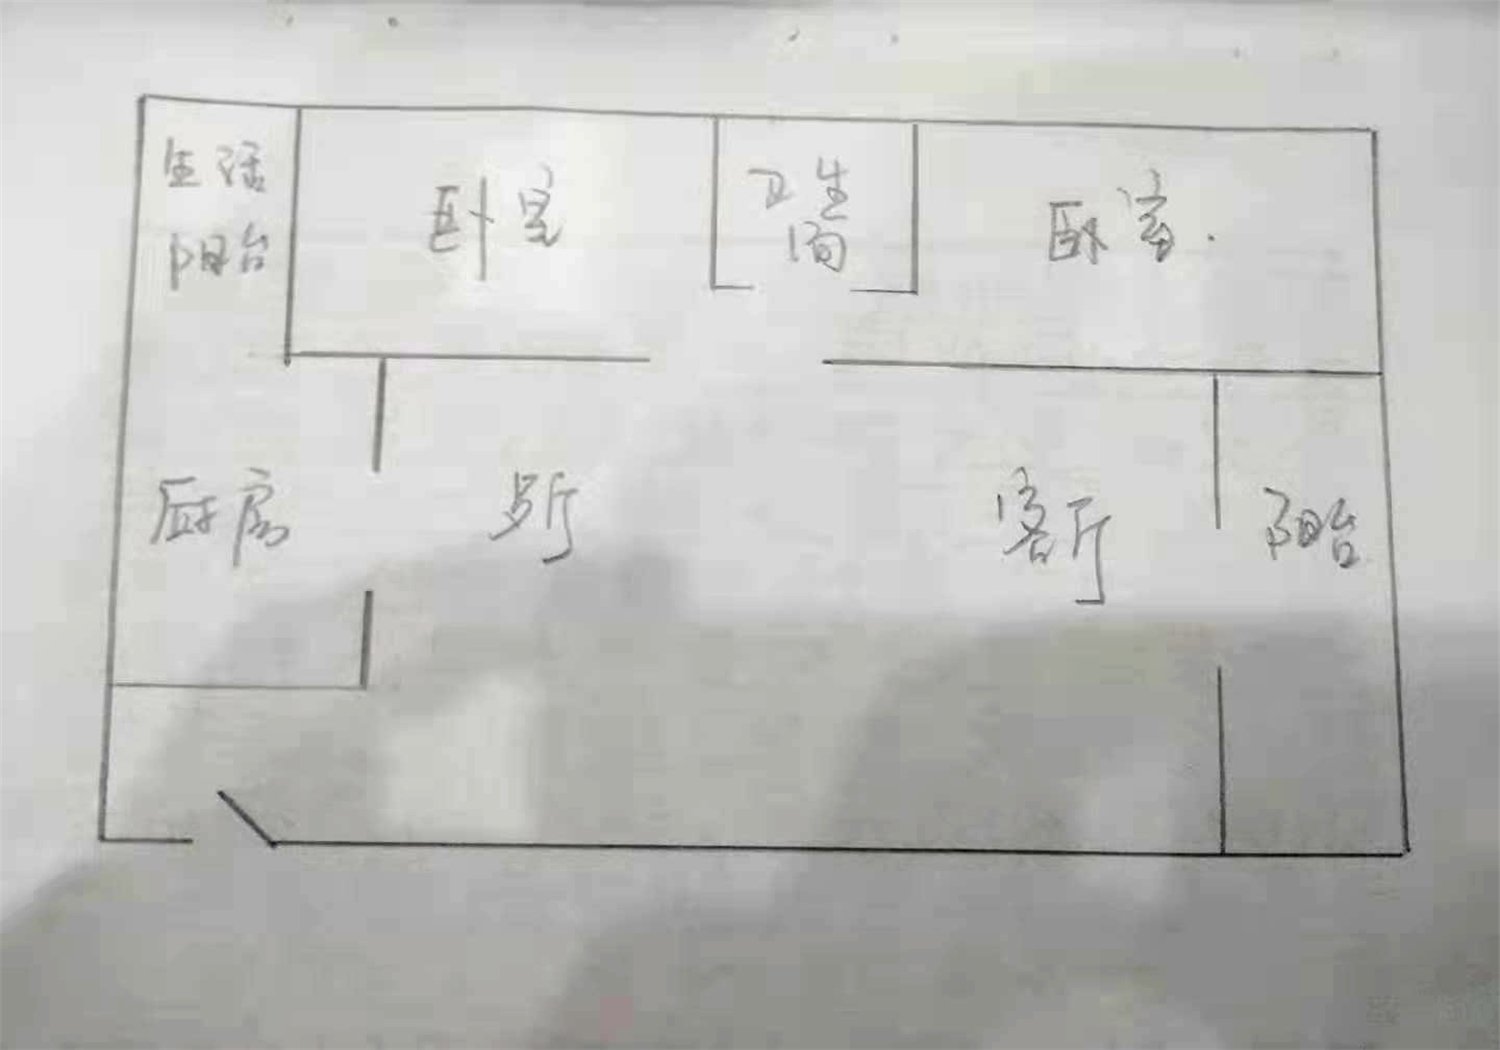 生活
阳台
卧室
卫生
间
卧室.
厨房
歺厅
客厅
阳台